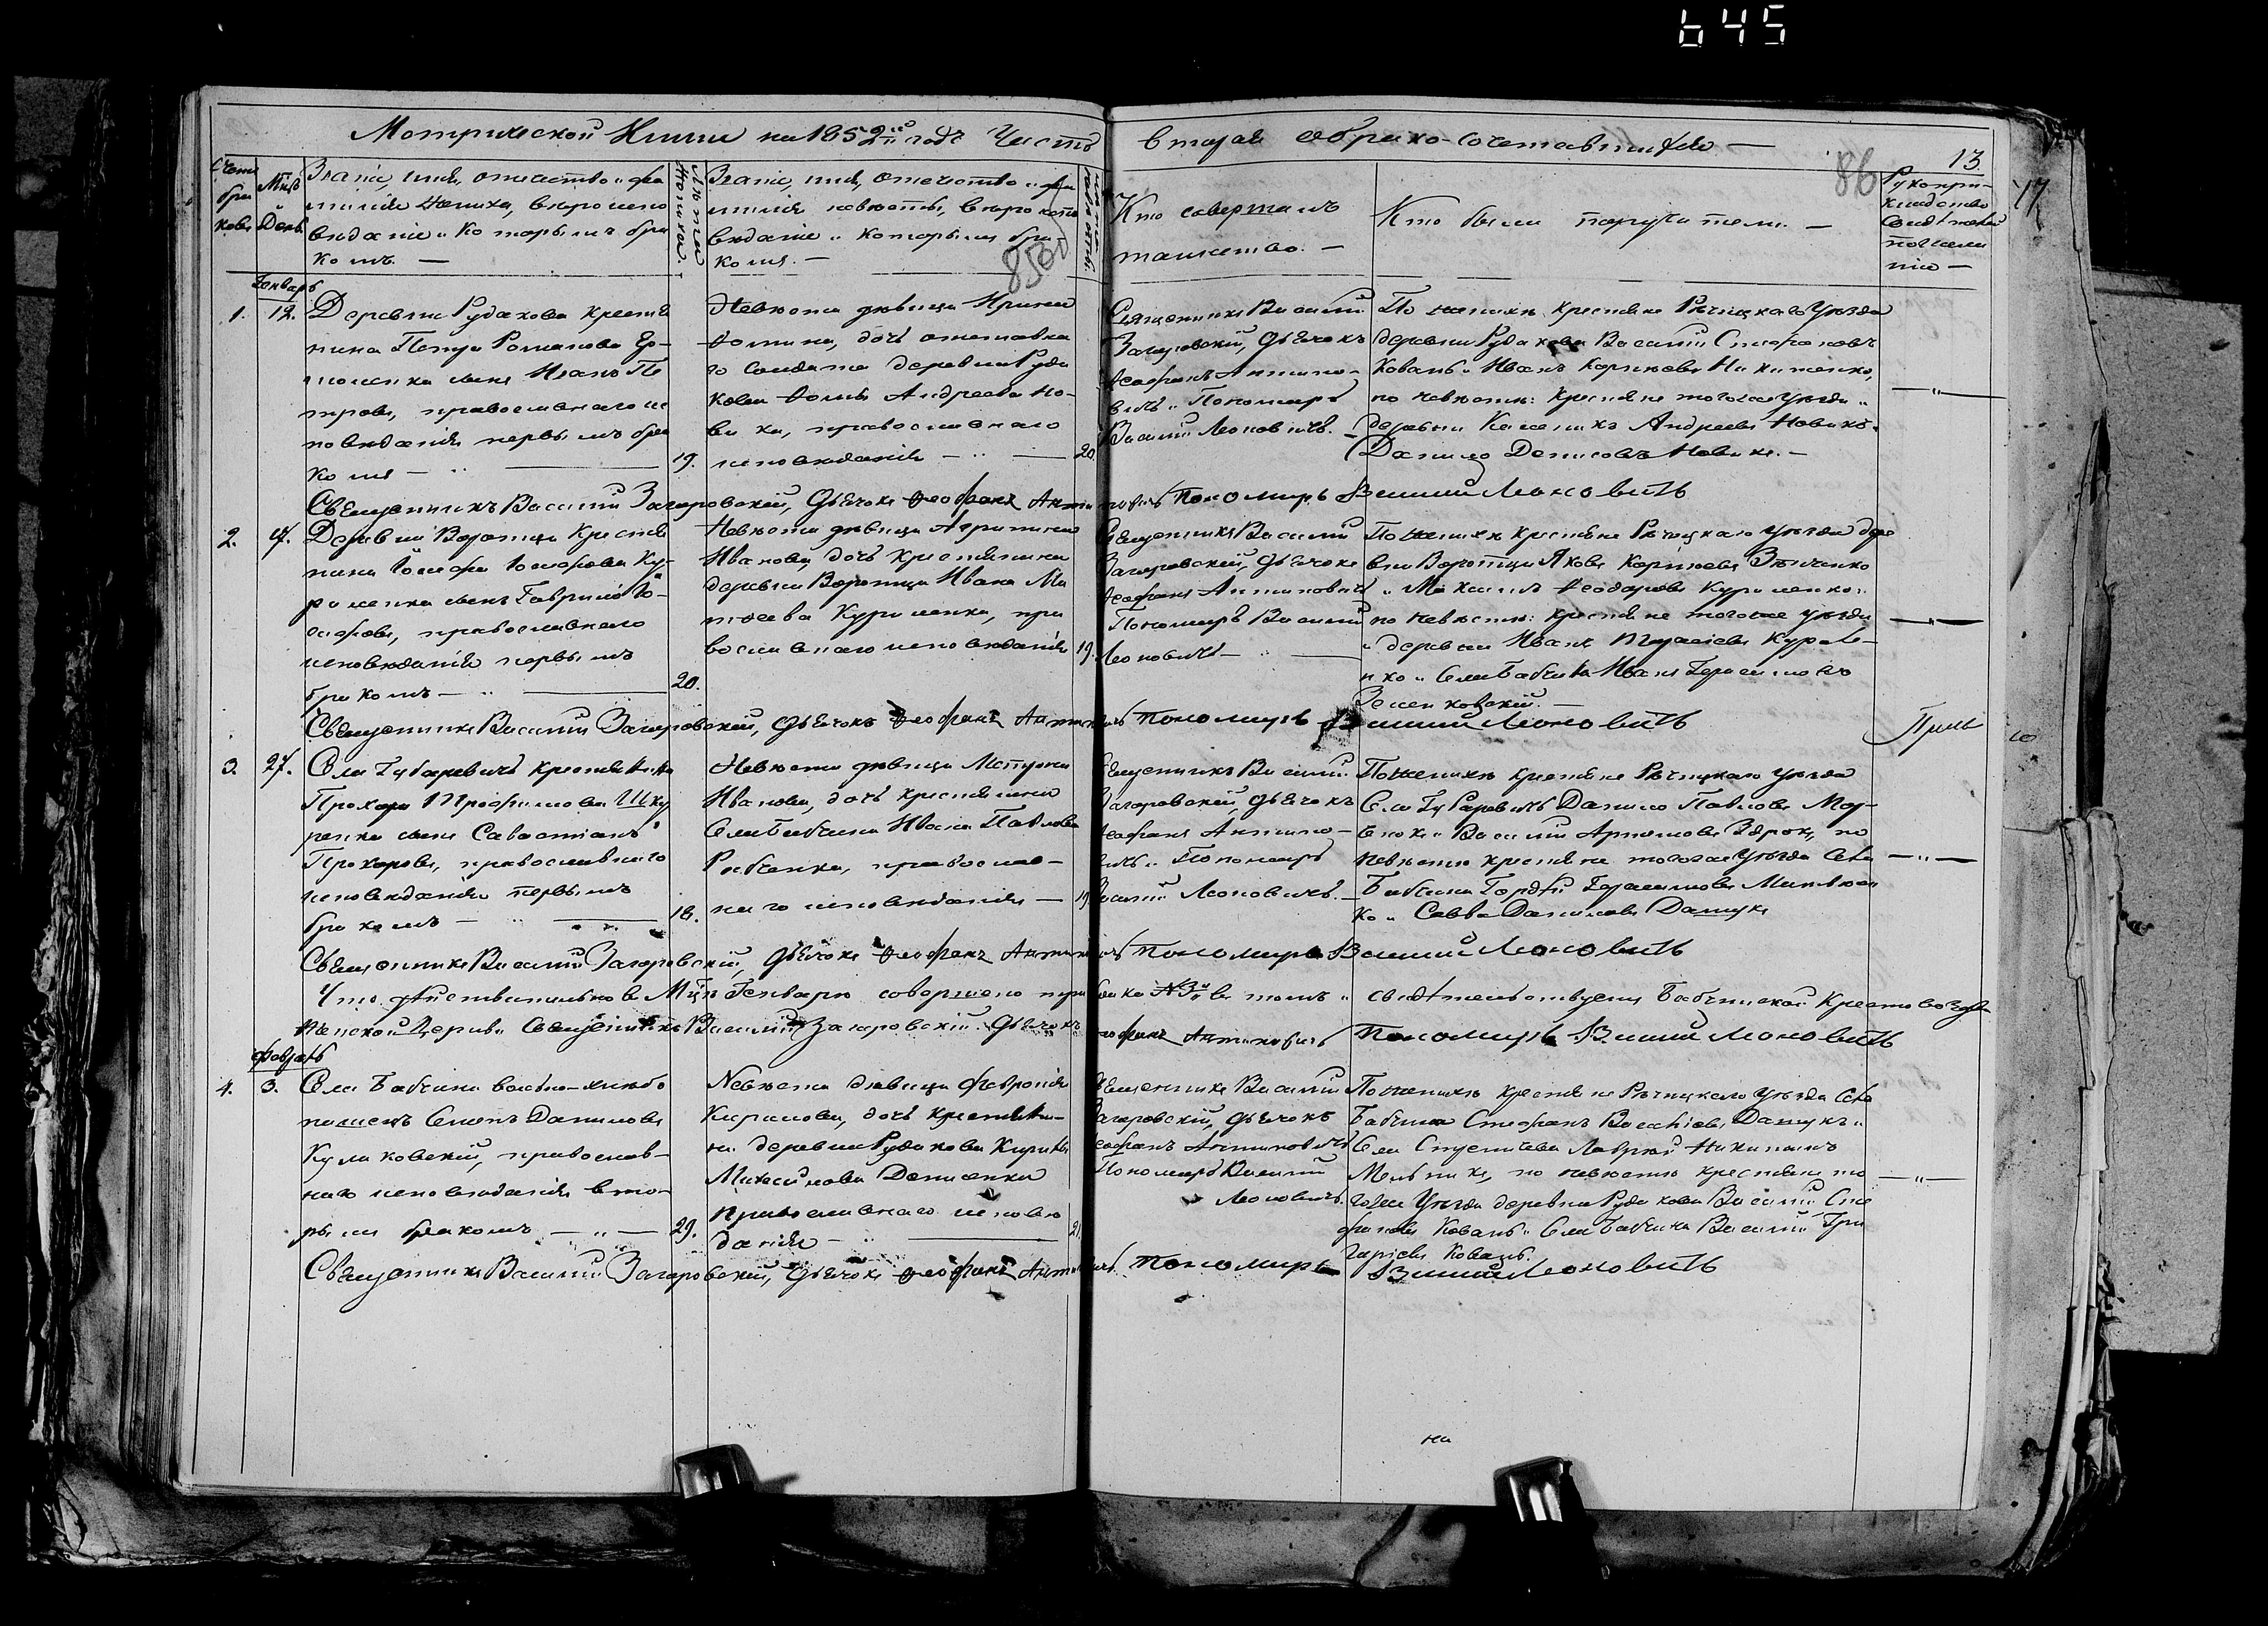 645
Метрической Книги на 1852й годъ Часть вторая о брако-сочетавшихся —
86
13
17
Счетъ бра ковъ
Мцъ и День
Званіе, имя, отечество и фа
милія жениха, вѣроиспо
вѣданіе и Которымъ бра
комъ. —
Лѣта Жениха.
Званіе, имя, отечество и фа
милія невѣсты, вѣроиспо
вѣданіе и которымъ бра
комъ. —
850
Кто совершалъ
таинство. —
Кто были поручители. —
Рукопри-
кладство
Свидѣтелей
по желанію —
Генварь
1. 12.
Деревни Рудакова крестья
нина Петра Романова
сынъ Иванъ Пе
тровъ, православнаго ис
повѣданія первымъ бра
комъ — 19.
Невѣста дѣвица Ирина
Фомина, дочь отставна
го Солдата деревни Руда
кова Фомы Андреева Но-
вика, православнаго
исповѣданія — 20.
Священникъ Василій
Загоровскій, Дьячокъ
Феофанъ Антипо-
вичъ и Пономарь
Василій Леоновичъ. —
По женихѣ крестьяне Рѣчицкаго Уѣзда
деревни Рудакова Василій Стефановъ
Коваль и Иванъ Корнѣевъ Никитенко,
по невѣстѣ: крестьяне тогоже уѣзда и
деревни Андреевъ Новикъ и
Данило Денисовъ Новикъ. —
Священникъ Василій Загоровскій, Дьячокъ Феофанъ Антиповичъ Пономарь Василій Леоновичъ
2.
Деревни Воротца Крестья
нина Іосифа Іосифова Ку-
риленка сынъ Гаврило Іо-
сифовъ, православнаго
исповѣданія первымъ
бракомъ — 20.
Невѣста дѣвица Агрипина
Иванова, дочь крестьянина
деревни Воротца Ивана Ма
тѣева Куриленка, пра
вославнаго исповѣданія 19.
Священникъ Василій
Загоровскій, Дьячокъ
Феофанъ Антиповичъ
Пономарь Василій
Леоновичъ —
По женихѣ крестьяне Рѣчицкаго уѣзда дере
вни Воротца Яковъ Корнѣевъ Зѣнченко
и Максимъ Феодоровъ Куриленко и
по невѣстѣ: крестьяне тогоже уѣзда
и деревни Иванъ Куриле-
нко и Села Бабчина Иванъ Герасимовъ
Зенковскій. —
Священникъ Василій Загоровскій, Дьячокъ Феофанъ Антиповичъ Пономарь Василій Леоновичъ
3. 27.
Села Губаревичъ крестьянина
Прохора Трофимова Шку
ренка сынъ Савастіанъ
Прохоровъ, православнаго
исповѣданія первымъ
бракомъ — 18.
Невѣста дѣвица Матрона
Иванова, дочь крестьянина
Села Бабчина Ивана Павлова
Рабченка, православ-
наго исповѣданія — 19.
Священникъ Василій
Загоровскій, Дьячокъ
Феофанъ Антипо-
вичъ и Пономарь
Василій Леоновичъ. —
По женихѣ крестьяне Рѣчицкаго уѣзда
Села Губаревичъ Данило Павловъ
и Василій Артемовъ Здрокъ, по
невѣстѣ крестьяне тогоже Уѣзда Села
Бабчина Гордѣй Герасимовъ
и Савва Даниловъ Дашукъ
Священникъ Василій Загоровскій, Дьячокъ Феофанъ Антиповичъ Пономарь Василій Леоновичъ
Что дѣйствительно в Мцѣ Генварѣ совершено три брака №3й в томъ и свидѣтельствуемъ Бабчинской Кресто воздви
женской Церкви Священникъ Василій Загоровскій. Дьячокъ Феофанъ Антиповичъ Пономарь Василій Леоновичъ
Февраль
4. 3.
Села Бабчина вольно-хлѣбо
пашецъ Семенъ Даниловъ
Кулаковскій, православ-
наго исповѣданія вто-
рымъ бракомъ — 29.
Невѣста дѣвица Февронія
Кирилова, дочь крестьяни-
на деревни Рудакова Кирила
Максимова Денисенка
православнаго исповѣ
данія — 21.
Священникъ Василій
Загоровскій, Дьячокъ
Феофанъ Антиповичъ
Пономарь Василій
Леоновичъ.
По женихѣ крестьяне Рѣчицкаго уѣзда Села
Бабчина Стефанъ Дашукъ и
Села Лаврѣй Никитинъ
Мельникъ, по невѣстѣ крестьяне то
гоже Уѣзда деревни Рудакова Василій Сте
фановъ Коваль и Села Бабчина Василій Гри
горіевъ Коваль.
Священникъ Василій Загоровскій, Дьячокъ Феофанъ Антиповичъ Пономарь Василій Леоновичъ
на